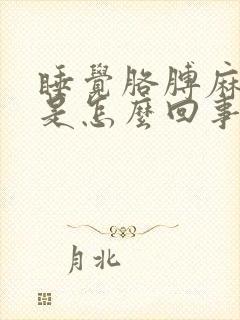 睡覺胳膊麻
是怎麼回事
月北